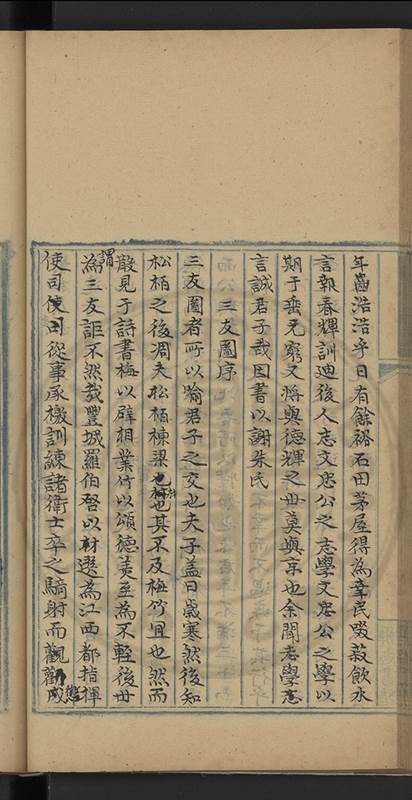 年齒浩浩乎日有餘裕石田茅屋得為幸民啜菽飲水
言報春輝訓迪後人志文忠公之志學文忠公之學以
期于垂无窮又將與德輝之世莫與京也余聞志學志
言誠君子哉因書以謝朱氏
三友圖序
三友圖者所以喻君子之交也夫子盖曰歲寒然後知
松栢之後凋夫松栢棟梁也其不及梅竹宜也然而
散見于詩書梅以辟相業竹以頌德美至為不輕後世
謂為三友詎不然哉豐城羅伯啓以材選為江西都指揮
使司使司從事承檄訓練諸衛士卒之騎射而觀勸成